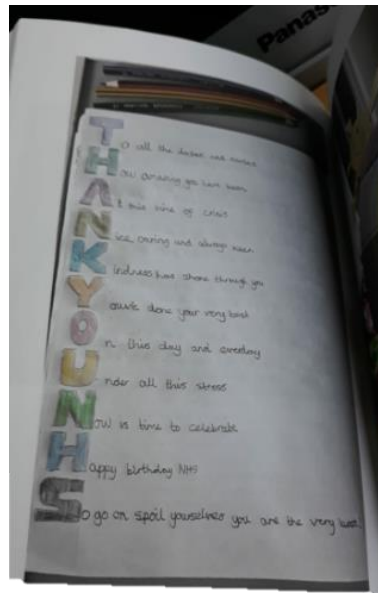 Panas
To all the doctors and nurses
How amazing you have been
At this time of crisis
Nice, caring and always keen
Kindness has shone through you
Youve done your very best
On this day and everday
Under all this stress
Now is time to celebrate
Happy birthday NHS
So go on spoil yourselves you are the very best.